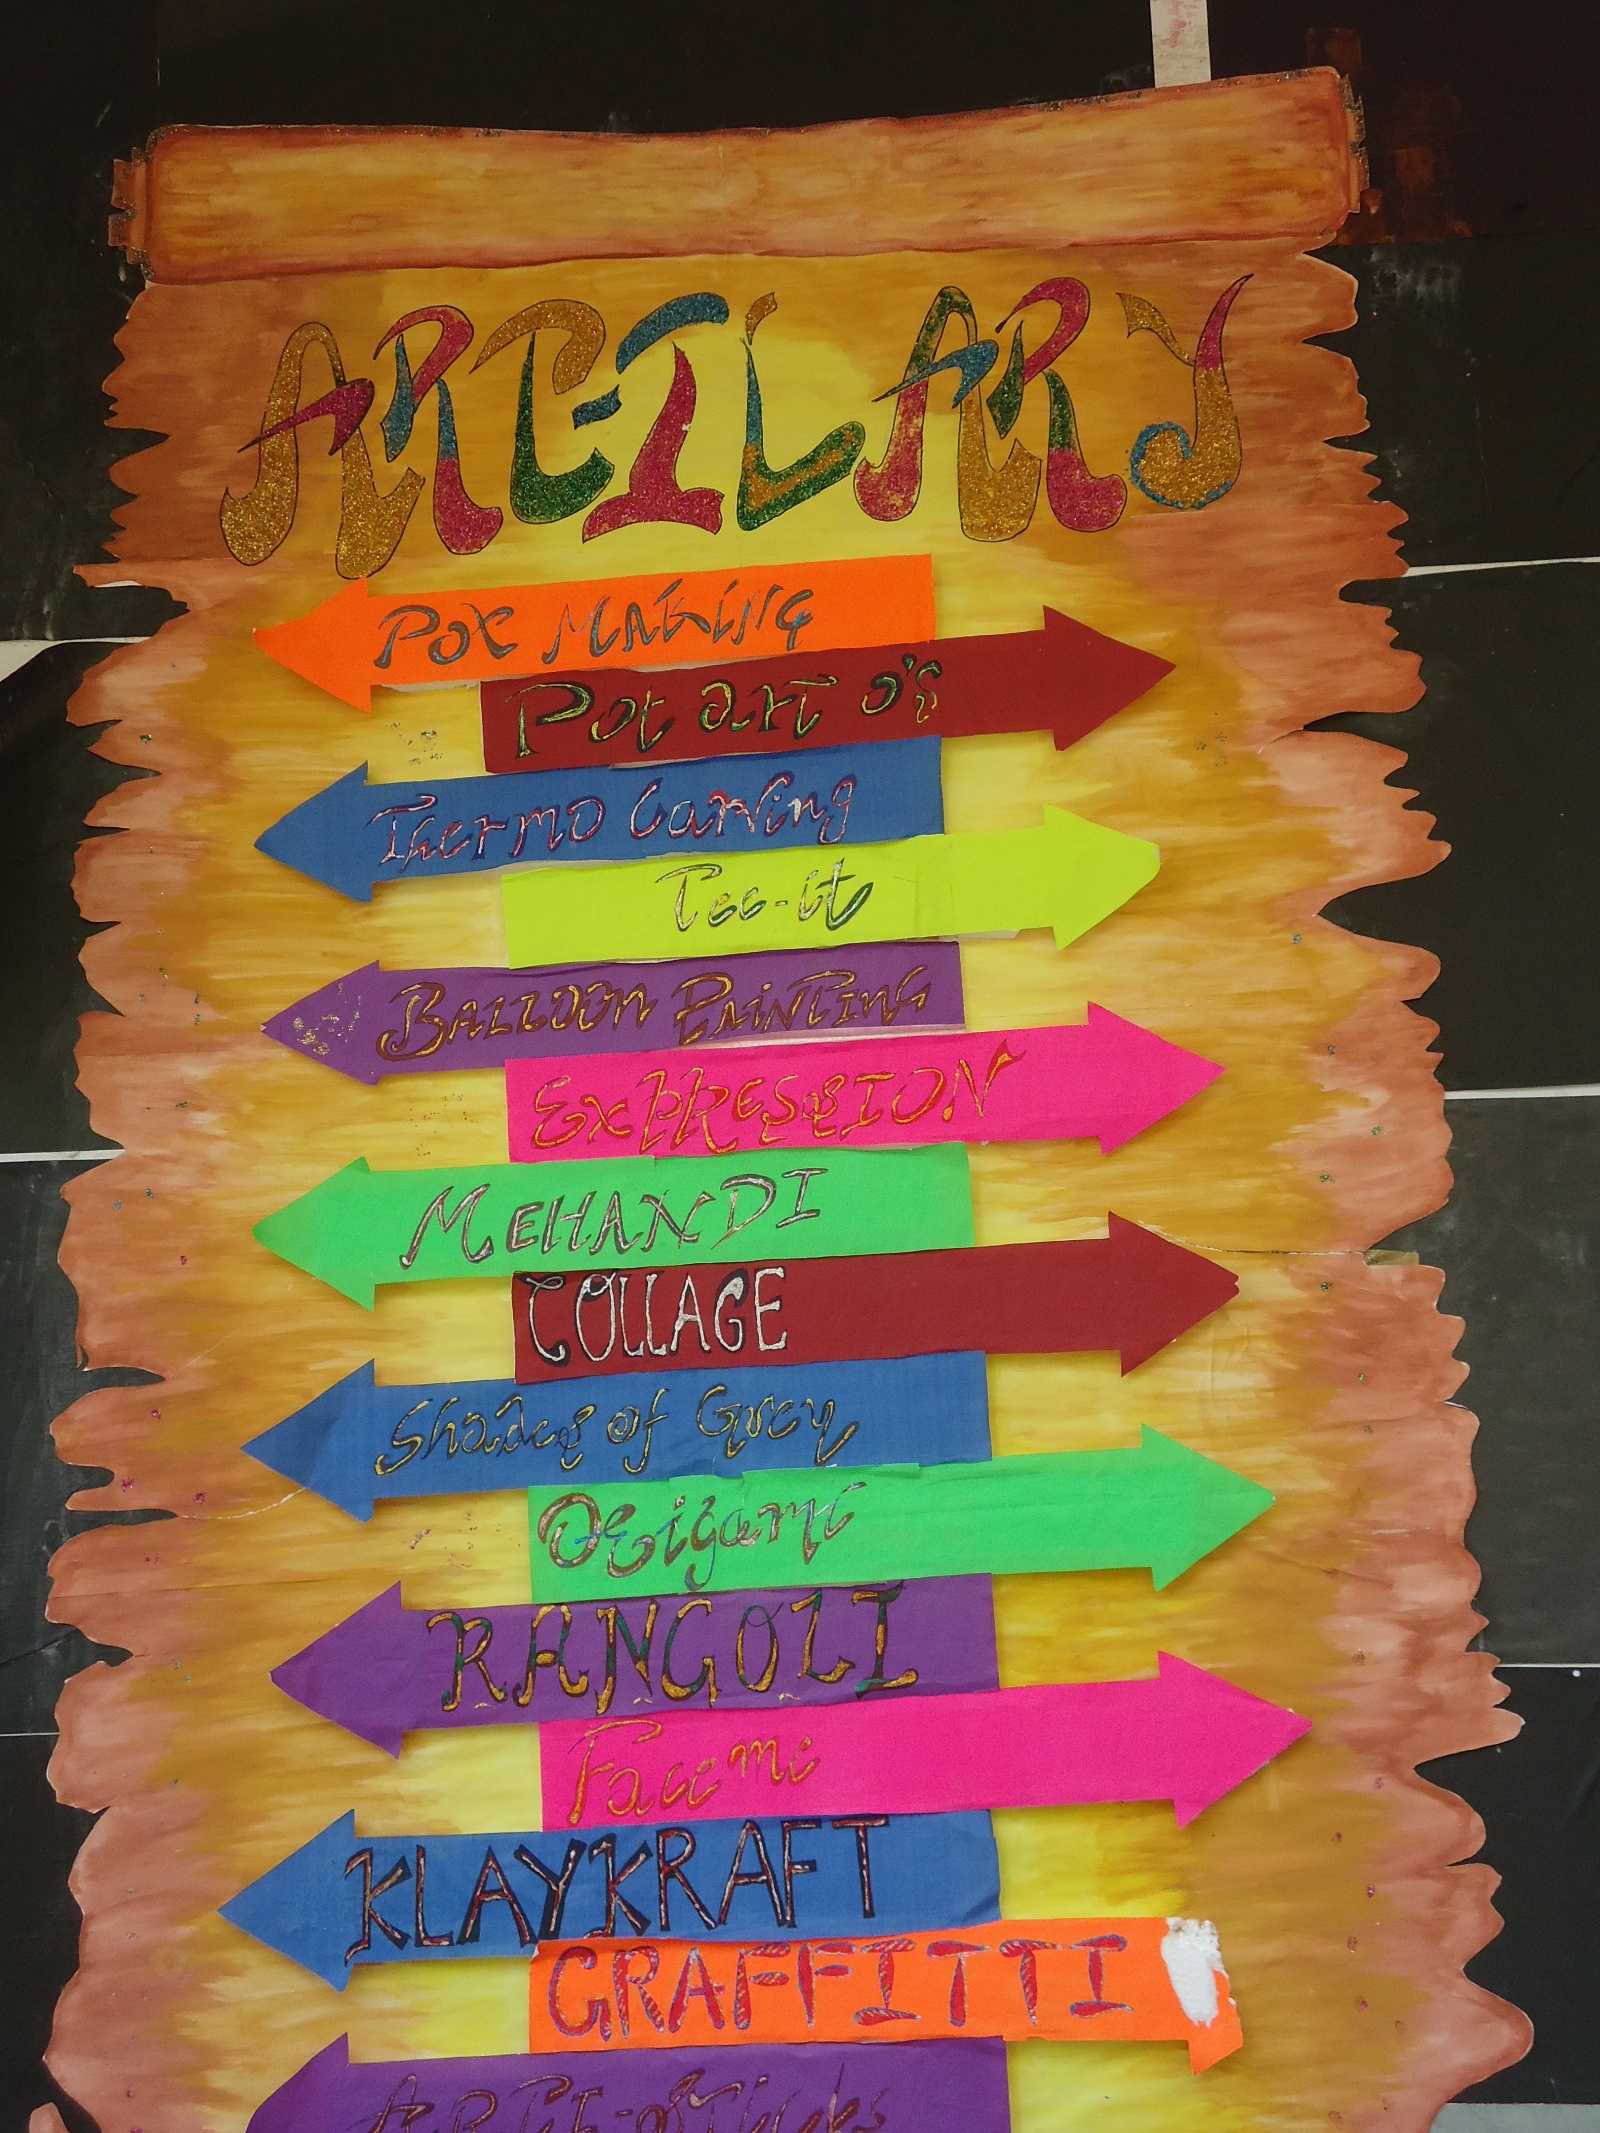 ARTILARY
POT MAKING
Pot art o's
Thermo Carving
Tee-it
BALLOON PAINTING
EXPRESSION
MEHANDI
COLLAGE
Shades of Grey
ORigami
RANGOLI
Face me
KLAYKRAFT
GRAFFITTI